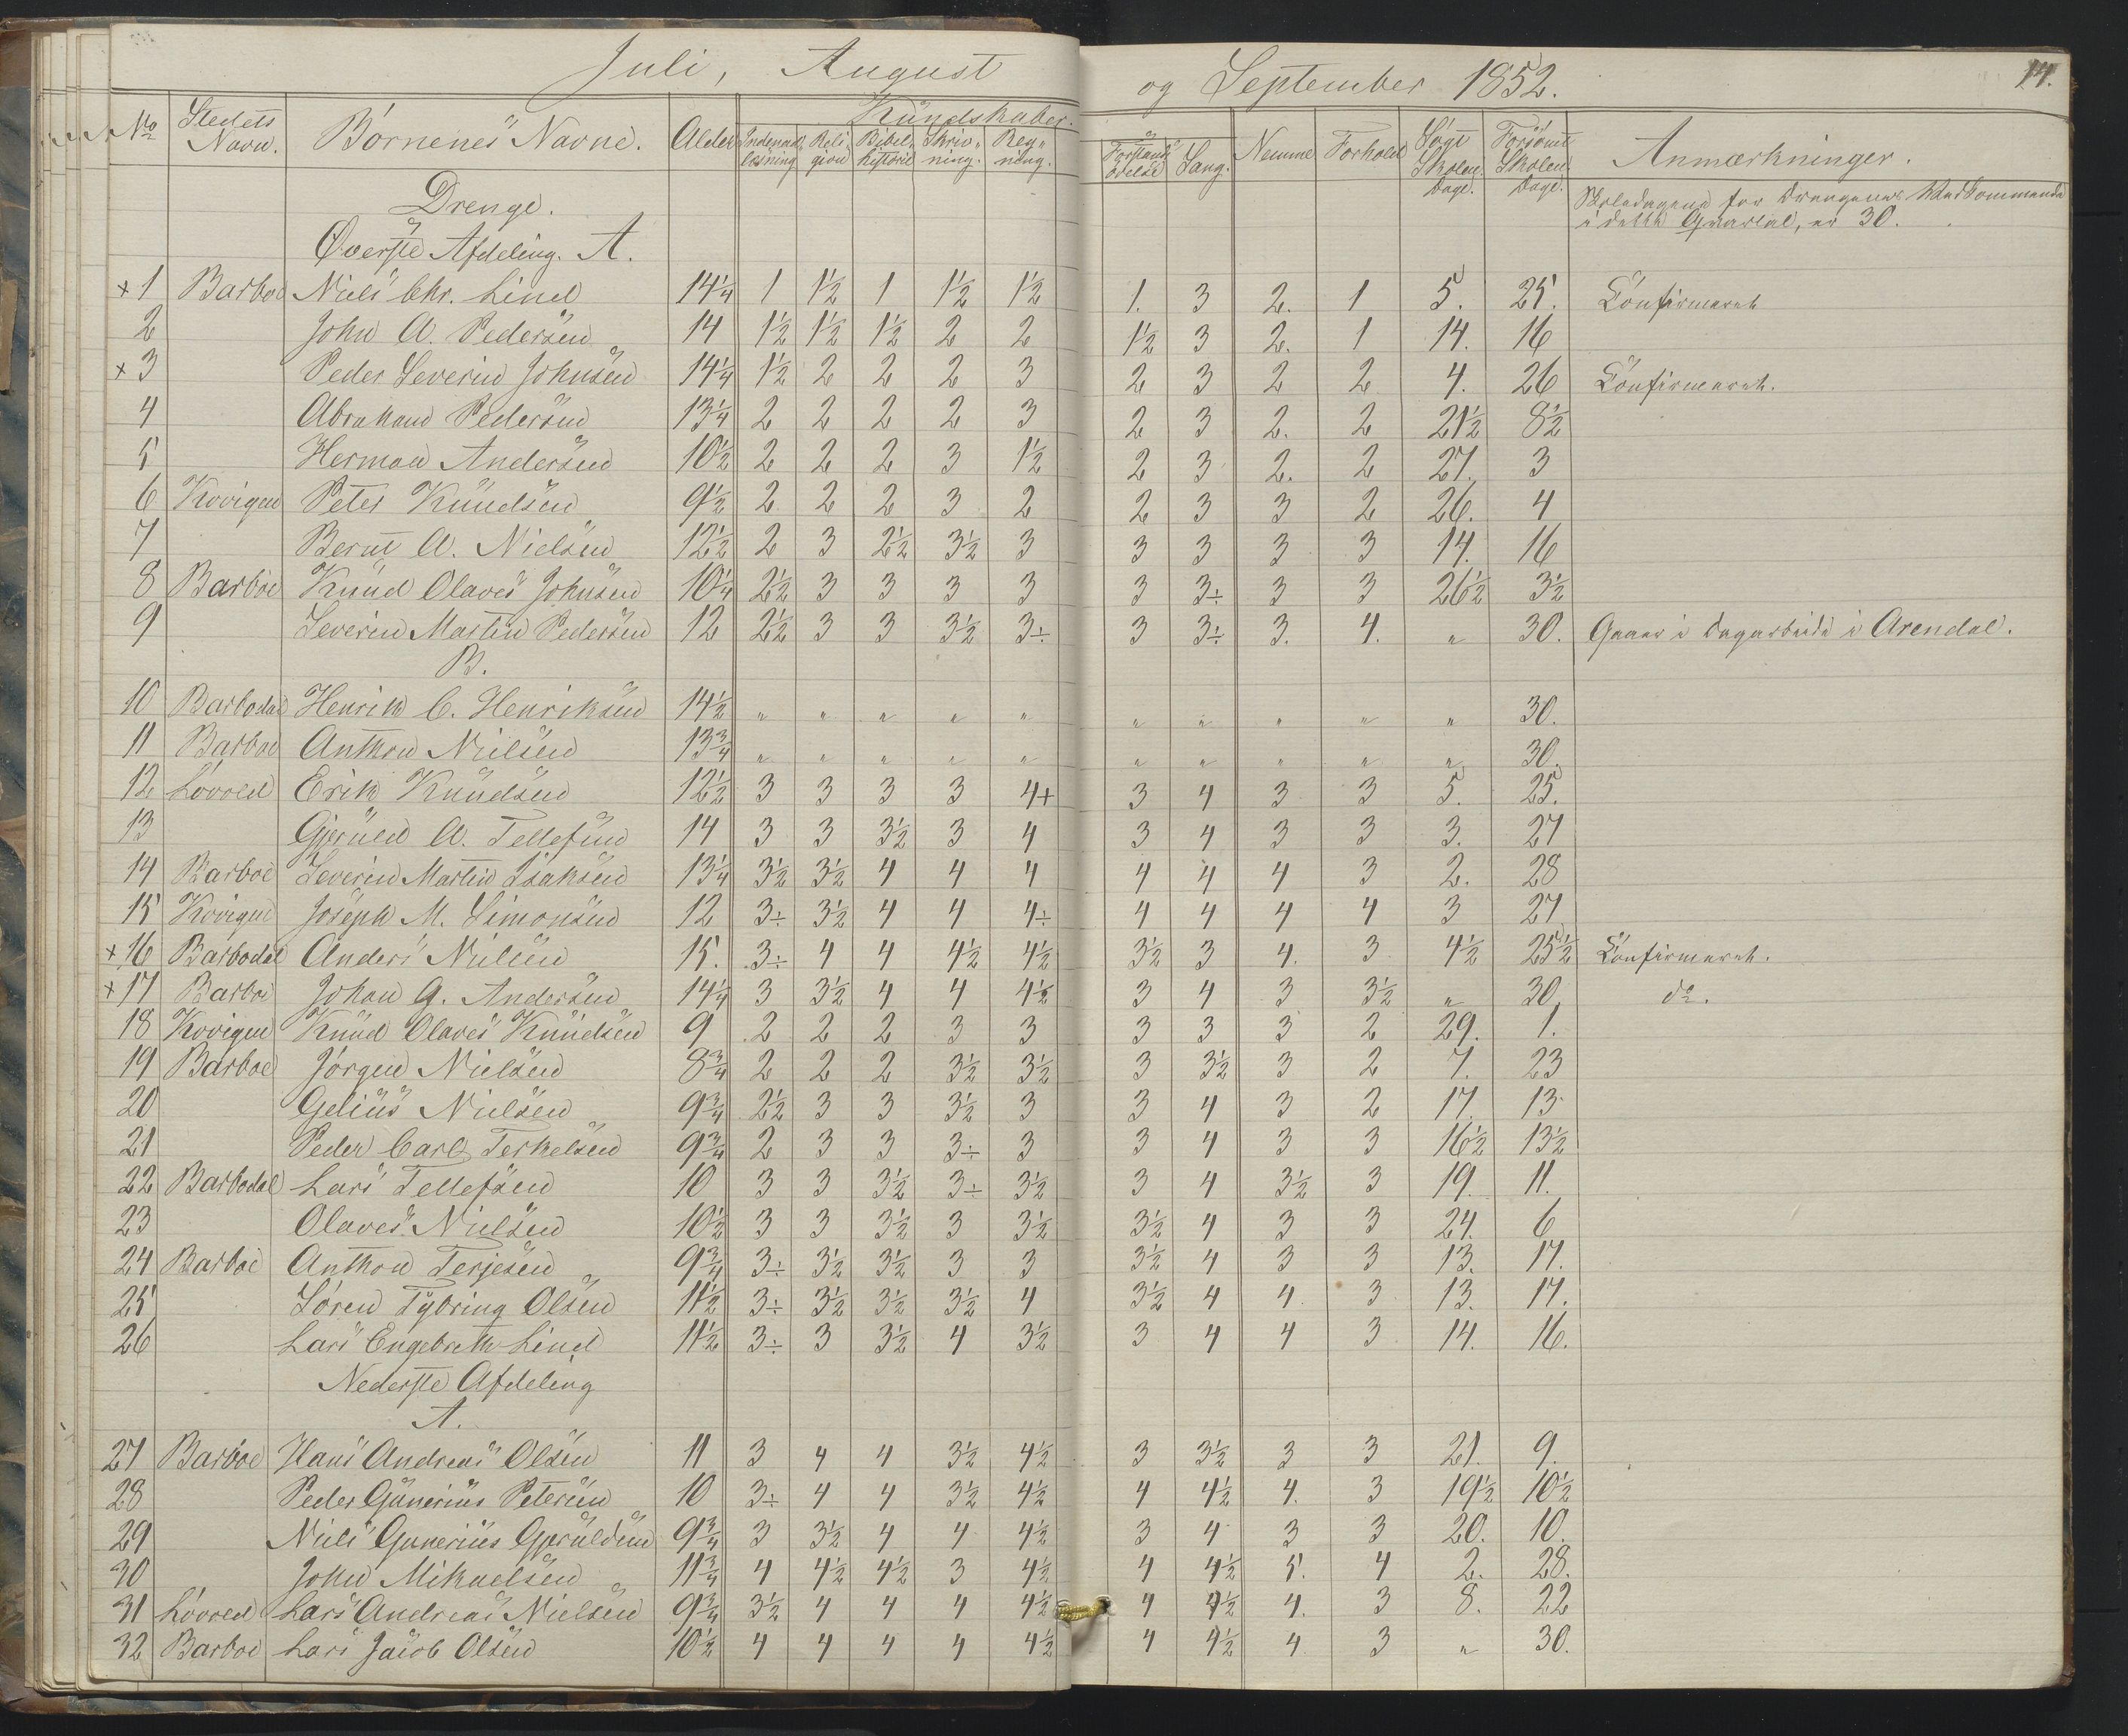 Juli, August og September 1852.
14.
No Stedets Navn. Børnenes Navne. Alder Kundskaber. Indenad, læsning Reli gion Bibel, historie Skriv, ning. Reg, ning. Forstands øvelse Sang. Nemme Forhold Søgt Skolen Dage. Forsømt Skolen Dage. Anmærkninger.
Drenge.
Skoledagene for Drengenes Vedkommende
i dette Qvartal, er 30.
Øverste Afdeling. A.
x 1 Barboe Niels Chr. Lind 14¼ 1 1½ 1 1½ 1½ 1. 3 2. 1 5. 25. Confirmeret
2 John A. Pedersen 14 1½ 1½ 1½ 2 2 1½ 3 2. 1 14. 16
x 3 Peder Severin Johnsen 14¼ 1½ 2 2 2 3 2 3 2 2 4. 26 Confirmeret.
4 Abraham Pedersen 13¼ 2 2 2 2 3 2 3 2. 2 21½ 8½
5 Herman Andersen 10½ 2 2 2 3 1½ 2 3 2. 2 27. 3
6 Kovigen Peter Knudsen 9½ 2 2 2 3 2 2 3 3 2 26. 4
7 Bernt A. Nielsen 12½ 2 3 2½ 3½ 3 3 3 3 3 14. 16
8 Barboe Knud Olaves Johnsen 10¼ 2½ 3 3 3 3 3 3÷ 3 3 26½ 3½
9 Severin Martin Pedersen 12 2½ 3 3 3½ 3÷ 3 3÷ 3. 4. " 30. Gaaer i Dagarbeide i Arendal.
B.
10 Barbodal Henrik C. Henriksen 14½ " " " " " " " " " " 30.
11 Barboe Anthon Nielsen 13¾ " " " " " " " " " " 30.
12 Løvold Erik Knudsen 12½ 3 3 3 3 4+ 3 4 3 3 5. 25.
13 Gjeruld A. Tellefsen 14 3 3 3½ 3 4 3 4 3 3 3. 27
14 Barboe Severin Martin Isaksen 13¼ 3½ 3½ 4 4 4 4 4 4 3 2. 28
15 Kovigen Joseph M. Simonsen 12 3÷ 3½ 4 4 4÷ 4 4 4 4 3 27
x 16 Barbodal Anders Nielsen 15. 3÷ 4 4 4½ 4½ 3½ 3 4. 3 4½ 25½ Confirmeret.
x 17 Barboe Johan G. Andersen 14¼ 3 3½ 4 4 4½ 3 4 3 3½ " 30, do.
18 Kovigen Knud Olaves Knudsen 9 2 2 2 3 3 3 3 3 2 29. 1.
19 Barboe Jørgen Nielsen 8¾ 2 2 2 3½ 3½ 3 3½ 3 2 7. 23
20 Gelius Nielsen 9¾ 2½ 3 3 3½ 3 3 4 3 2 17. 13
21 Peder Carl Terkelsen 9¾ 2 3 3 3÷ 3 3 4 3 3 16½ 13½
22 Barbodal Lars Tellefsen 10 3 3 3½ 3÷ 3½ 3 4 3½ 3 19. 11.
23 Olaves Nielsen 10½ 3 3 3½ 3 3½ 3½ 4 3 3 24. 6
24 Barboe Anthon Terjesen 9¾ 3÷ 3½ 3½ 3 3 3½ 4 3 3 13. 17.
25 Søren Tybring Olsen 11½ 3÷ 3½ 3½ 3½ 4 3½ 4 4 3 13. 17.
26 Lars Engebreth Lind 11½ 3÷ 3 3½ 4 3½ 3 4 4 3 14. 16.
Nederste Afdeling
A.
27 Barboe Hans Andreas Olsen 11 3 4 4 3½ 4½ 3 3½ 3 3 21. 9.
28 Peder Gunerius Petersen 10 3÷ 4 4 3½ 4½ 4 4½ 4. 3 19½ 10½
29 Niels Gunerius Gjeruldsen 9¾ 3 3½ 4 4 4½ 3 4 3 3 20. 10.
30 John Mikaelsen 11¾ 4 4½ 4½ 3 4½ 4 4½ 5. 4 2. 28.
31 Løvold Lars Andreas Nielsen 9¾ 3½ 4 4 4 4½ 4 4½ 4. 3 8. 22
32 Barboe Lars Jacob Olsen 10½ 4 4 4 4 4½ 4 4½ 4 3 " 30.